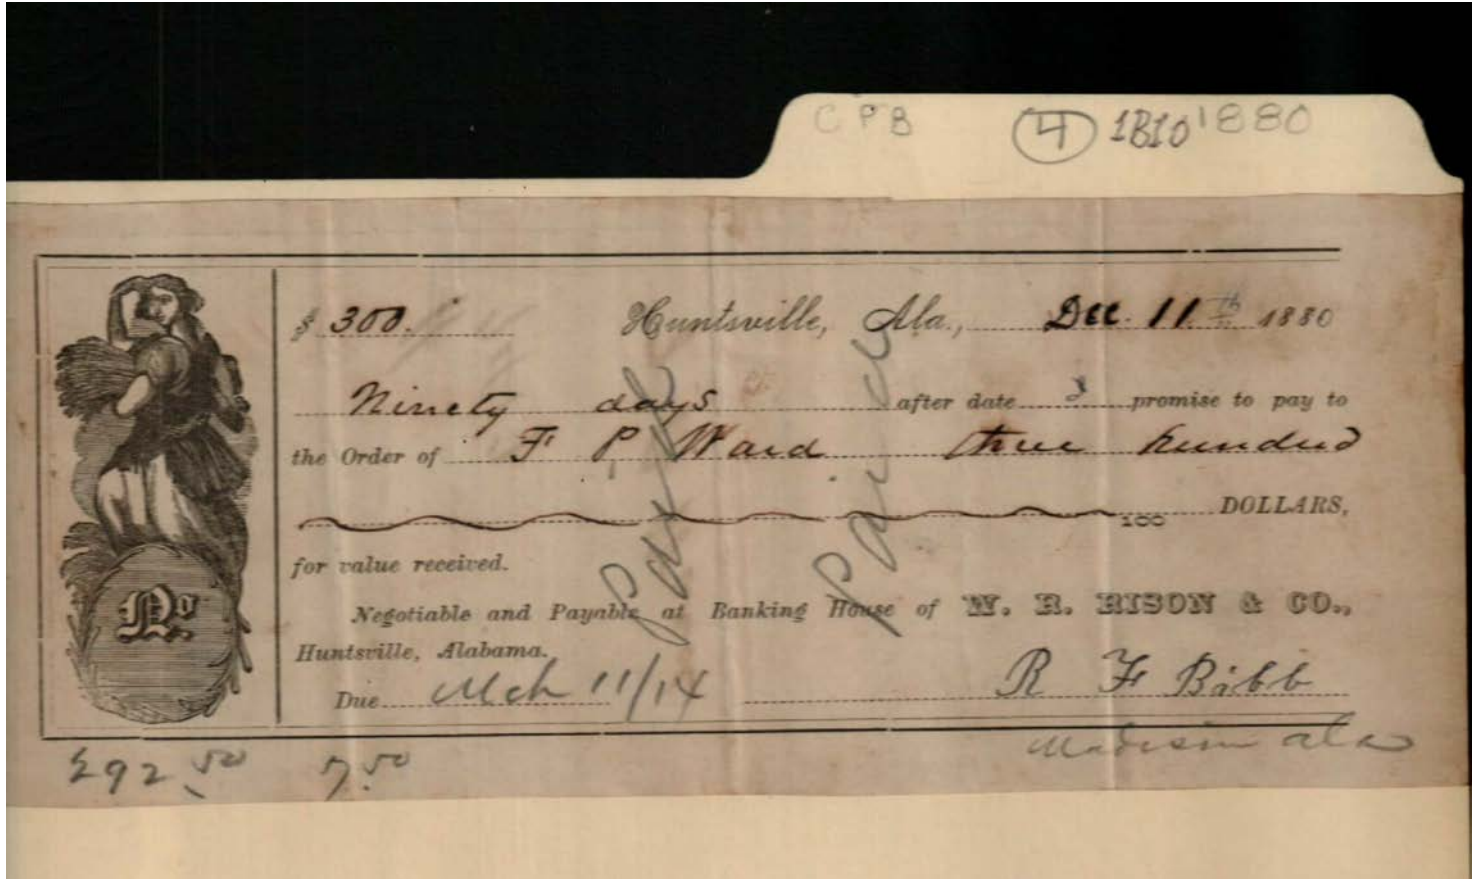 CPB 4 1B10 1880
$ 300. Huntsville, Ala., Dec. 11th 1880
Ninety days after date I promise to pay to
the Order of F P. Ward three hundred
100 DOLLARS,
for value received.
Negotiable and Payable at Banking House of W. R. RISON & CO.,
Huntsville, Alabama.
Due Mch 11/14 R F Bibb
Madison Ala
292.50 7.50
No.
Paid
Paid